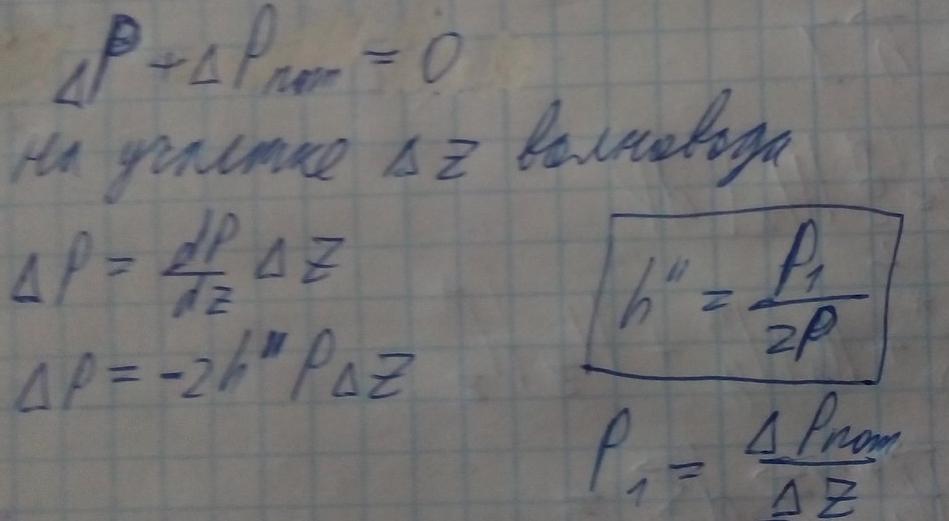 ΔP + ΔPпот = 0
на участке Δz волновода
ΔP = dP/dz Δz
ΔP = -2h" P Δz
h" = P₁/2P
P₁ = ΔPпот/Δz